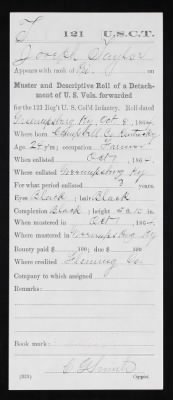 T | 121 | U.S.C.T.
Joseph Taylor
Appears with rank of Pvt. on
Muster and Descriptive Roll of a Detach-
ment of U. S. Vols. forwarded
for the 121 Reg't U. S. Col'd Infantry. Roll dated
Greenupsburg Ky, Oct 8, 1864.
Where born Campbell Co. Kentucky
Age 24 y'rs; occupation Farmer
When enlisted Oct 7, 1864.
Where enlisted Greenupsburg Ky
For what period enlisted 3 years.
Eyes Black; hair Black
Complexion Black; height 5 ft. 10 in.
When mustered in Oct 7, 1864
Where mustered in Greenupsburg Ky
Bounty paid $ 100; due $ 100
Where credited Fleming Co.
Company to which assigned
Remarks:
Book mark:
(339) Copyist.